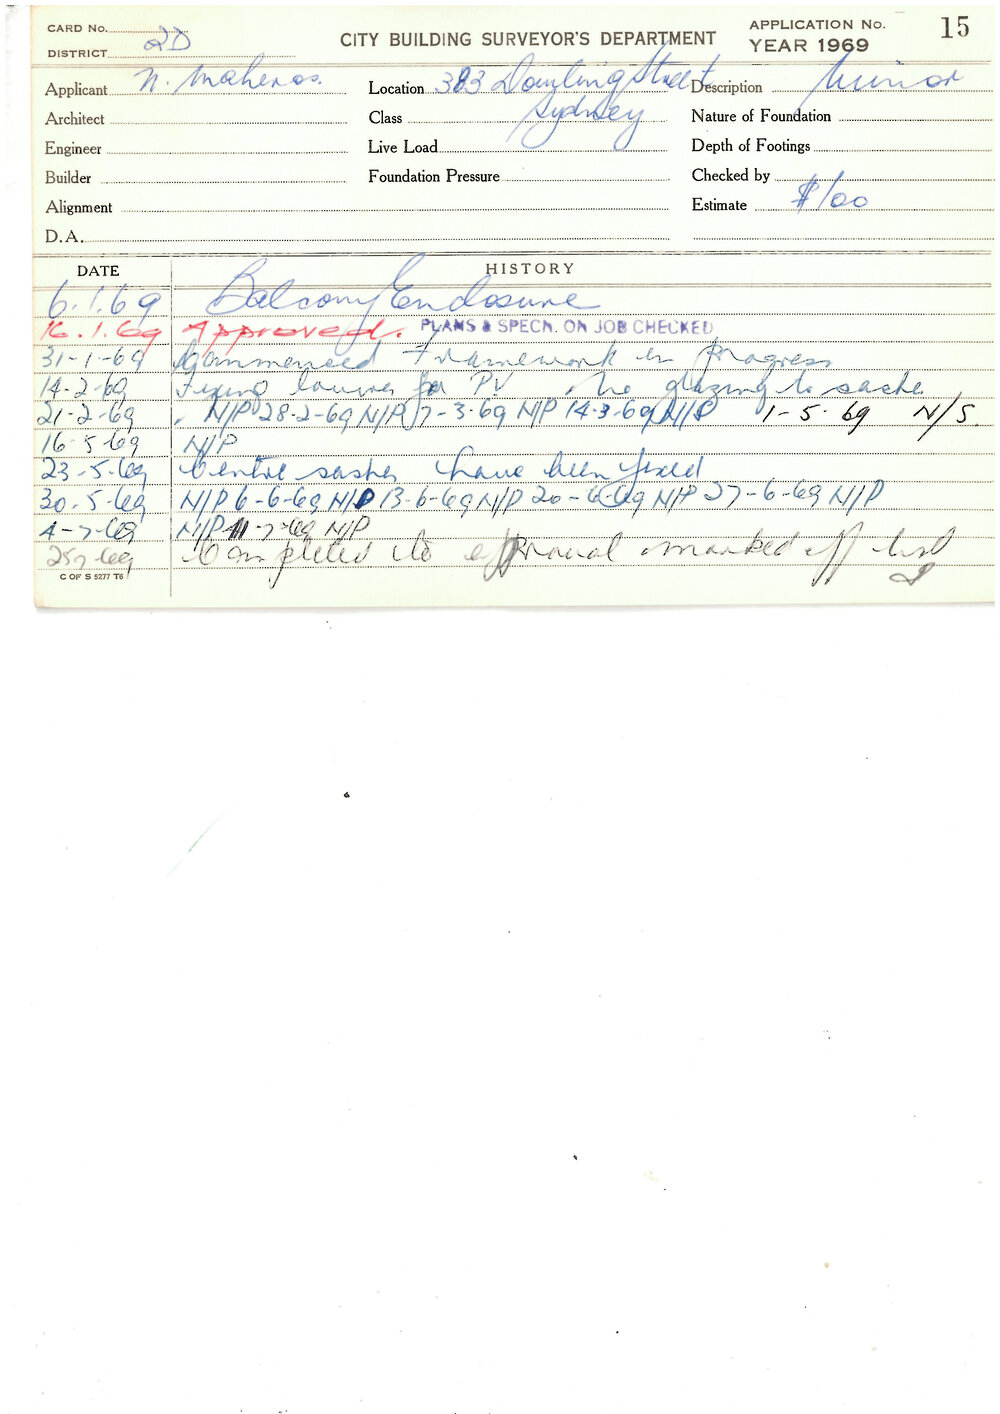 CARD No.
DISTRICT 2D
CITY BUILDING SURVEYOR'S DEPARTMENT
APPLICATION No. 15
YEAR 1969
Applicant N. Maheras. Location 383 Dowling Street Sydney Description Minor
Architect Class Nature of Foundation
Engineer Live Load Depth of Footings
Builder Foundation Pressure Checked by
Alignment Estimate $100
D.A.
DATE HISTORY
6.1.69 Balcony Enclosure
16.1.69 Approved. PLANS & SPECN. ON JOB CHECKED
31-1-69 Commenced Framework in progress
14-2-69 Fixing louvres for PV no glazing to sashes
21-2-69 N/P 28-2-69 N/P 7-3-69 N/P 14-3-69 N/P 1-5-69 N/S.
16-5-69 N/P
23-5-69 Centre sashes have been fixed
30-5-69 N/P 6-6-69 N/P 13-6-69 N/P 20-6-69 N/P 27-6-69 N/P
4-7-69 N/P 11-7-69 N/P
25-7-69 Completed to approval marked off list
C OF S 5277 T6